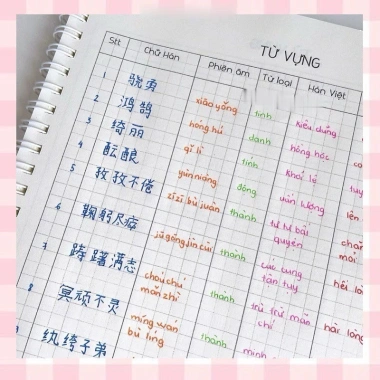 TỪ VỰNG
Stt Chữ Hán Phiên âm Từ loại Hán Việt
1 骁勇 xiāo yǒng tính kiêu dũng
2 鸿鹄 hóng hú danh hồng hộc
3 绮丽 qǐ lì tính lệ
4 酝酿 yùn niàng động
5 孜孜不倦 zīzī bú juàn thành tư tư bất
quyện
6 鞠躬尽瘁 jūgōng jìn cuì thành cúc cung
tận tụy
7 踌躇满志 chóu chú thành trù trừ mãn
mǎn zhì chí
8 冥顽不灵 míng wán thành minh
bù líng
纨绔子弟